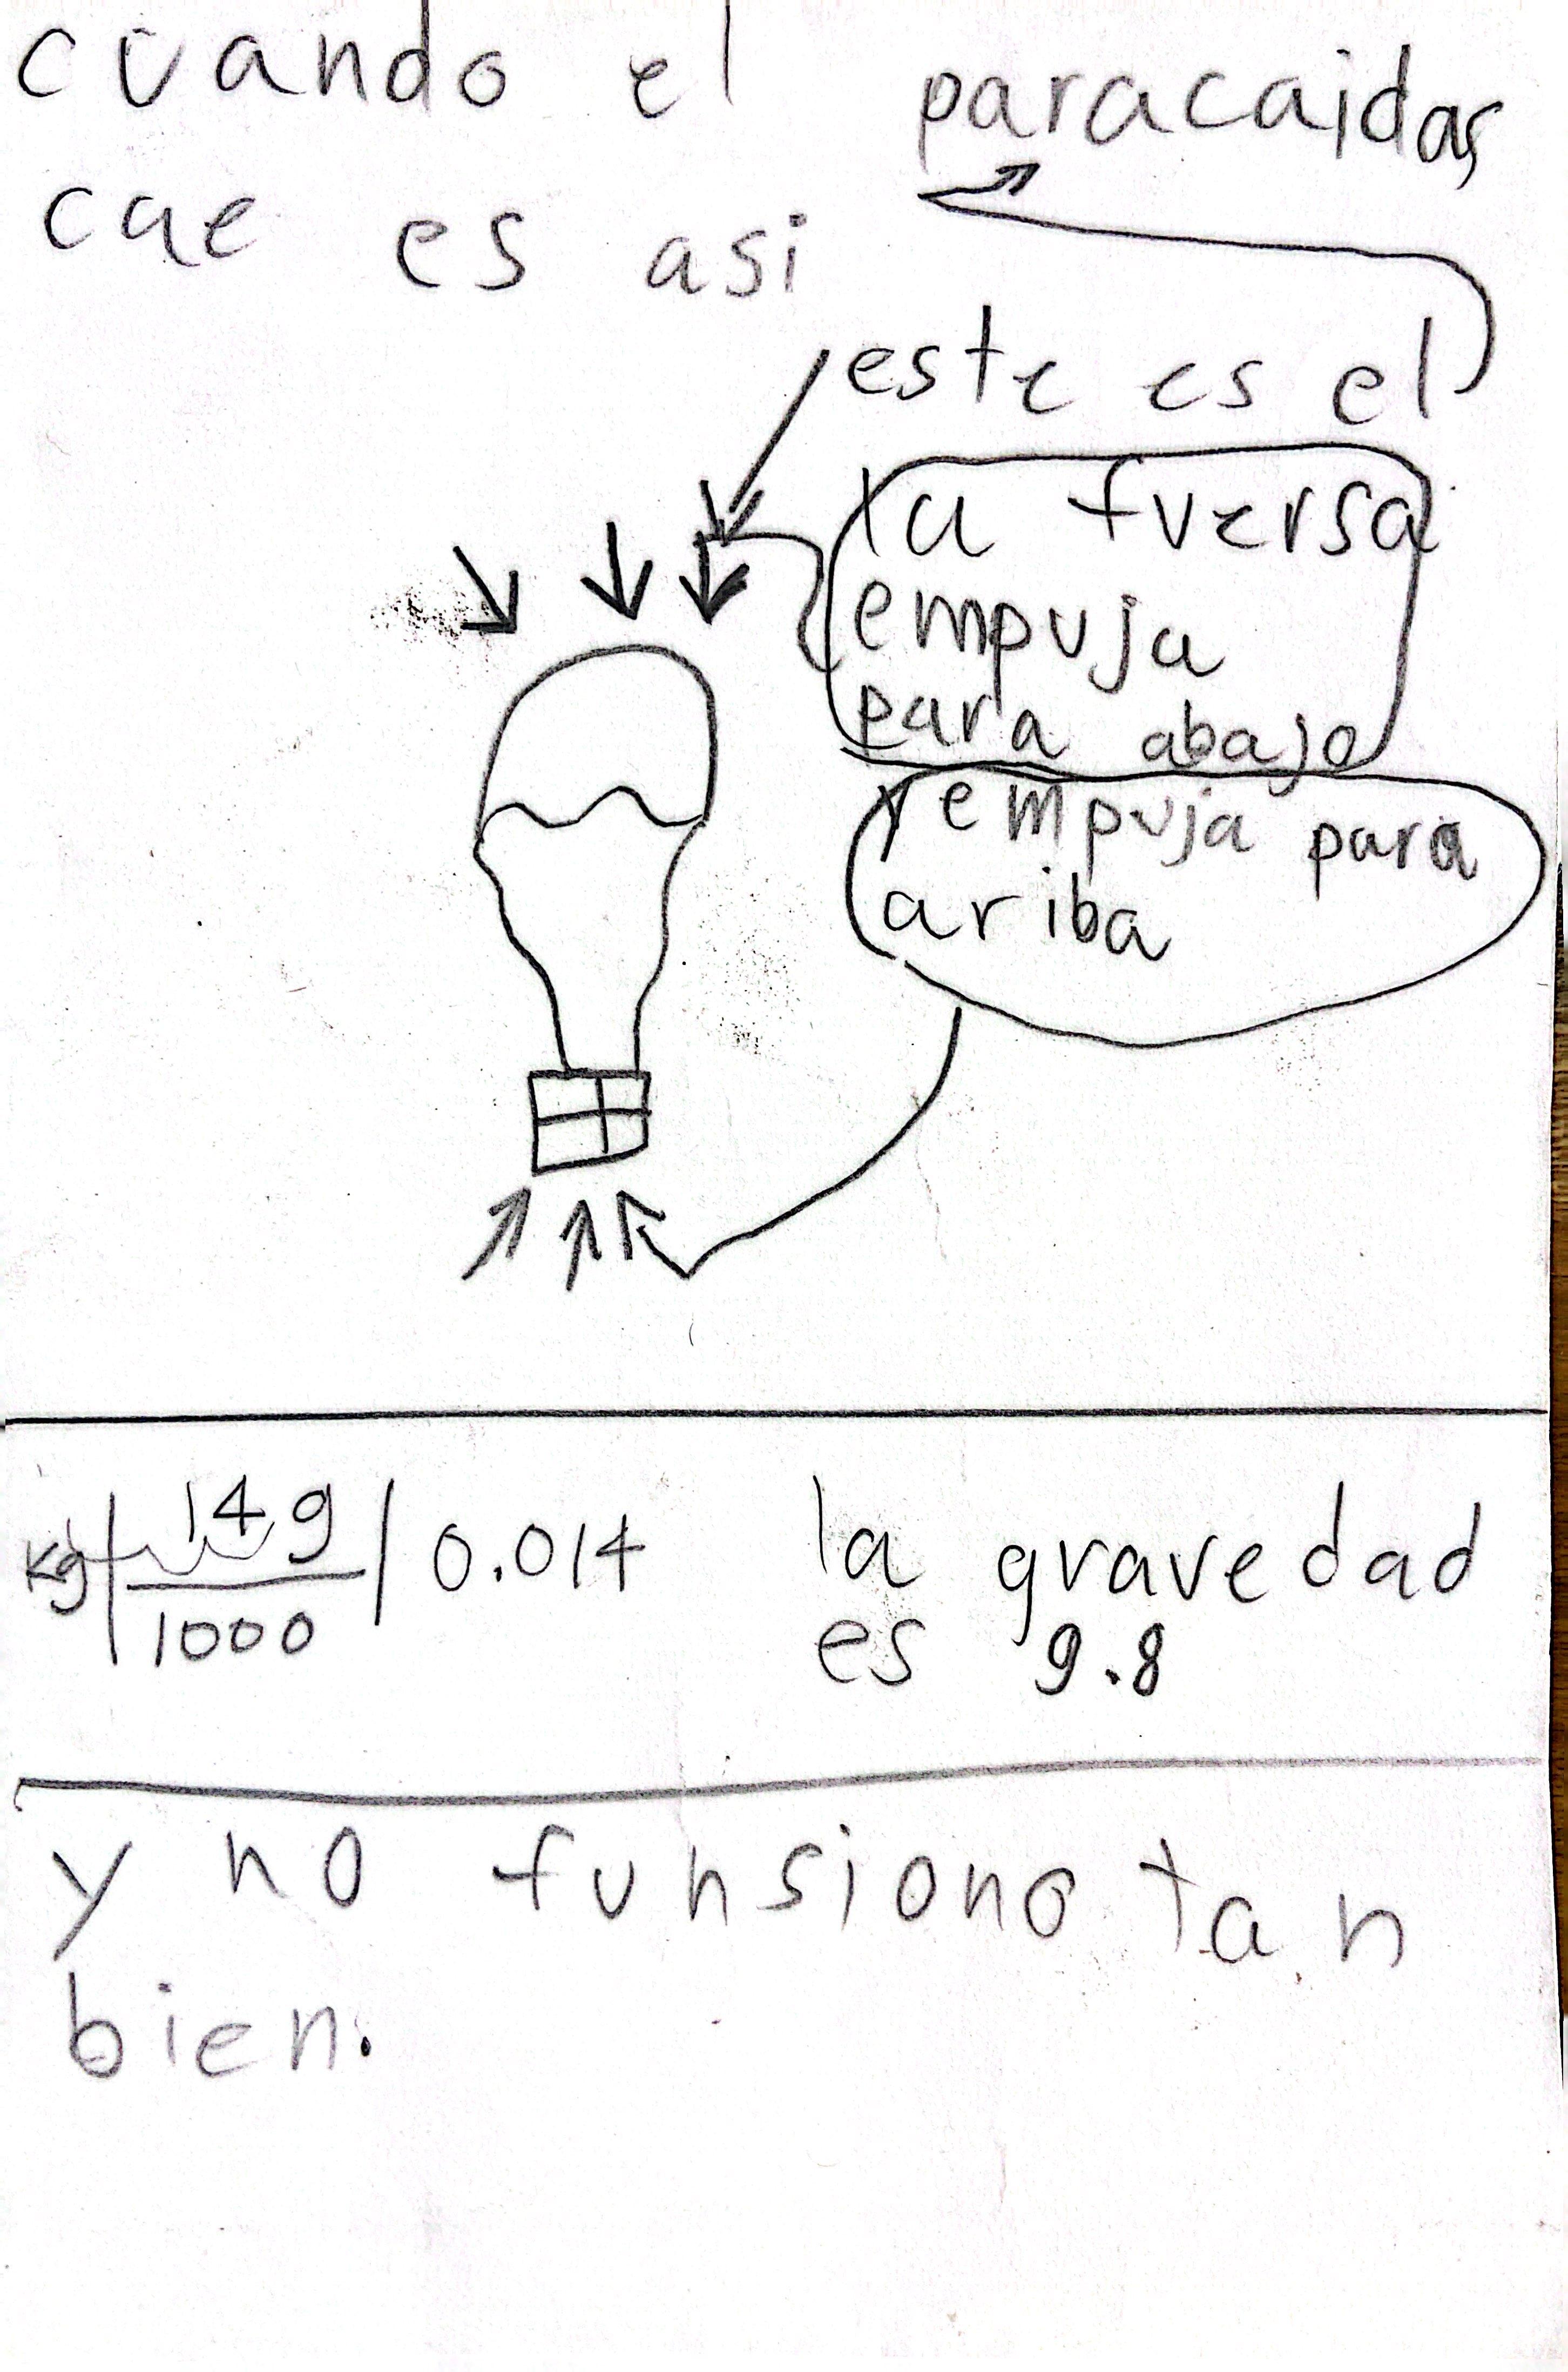 cuando el paracaidas
cae es asi
este es el
la fuersa
empuja
para abajo
y empuja para
ariba
kg 14 g 0.014
1000
la gravedad
es 9.8
y no funsiono tan
bien.